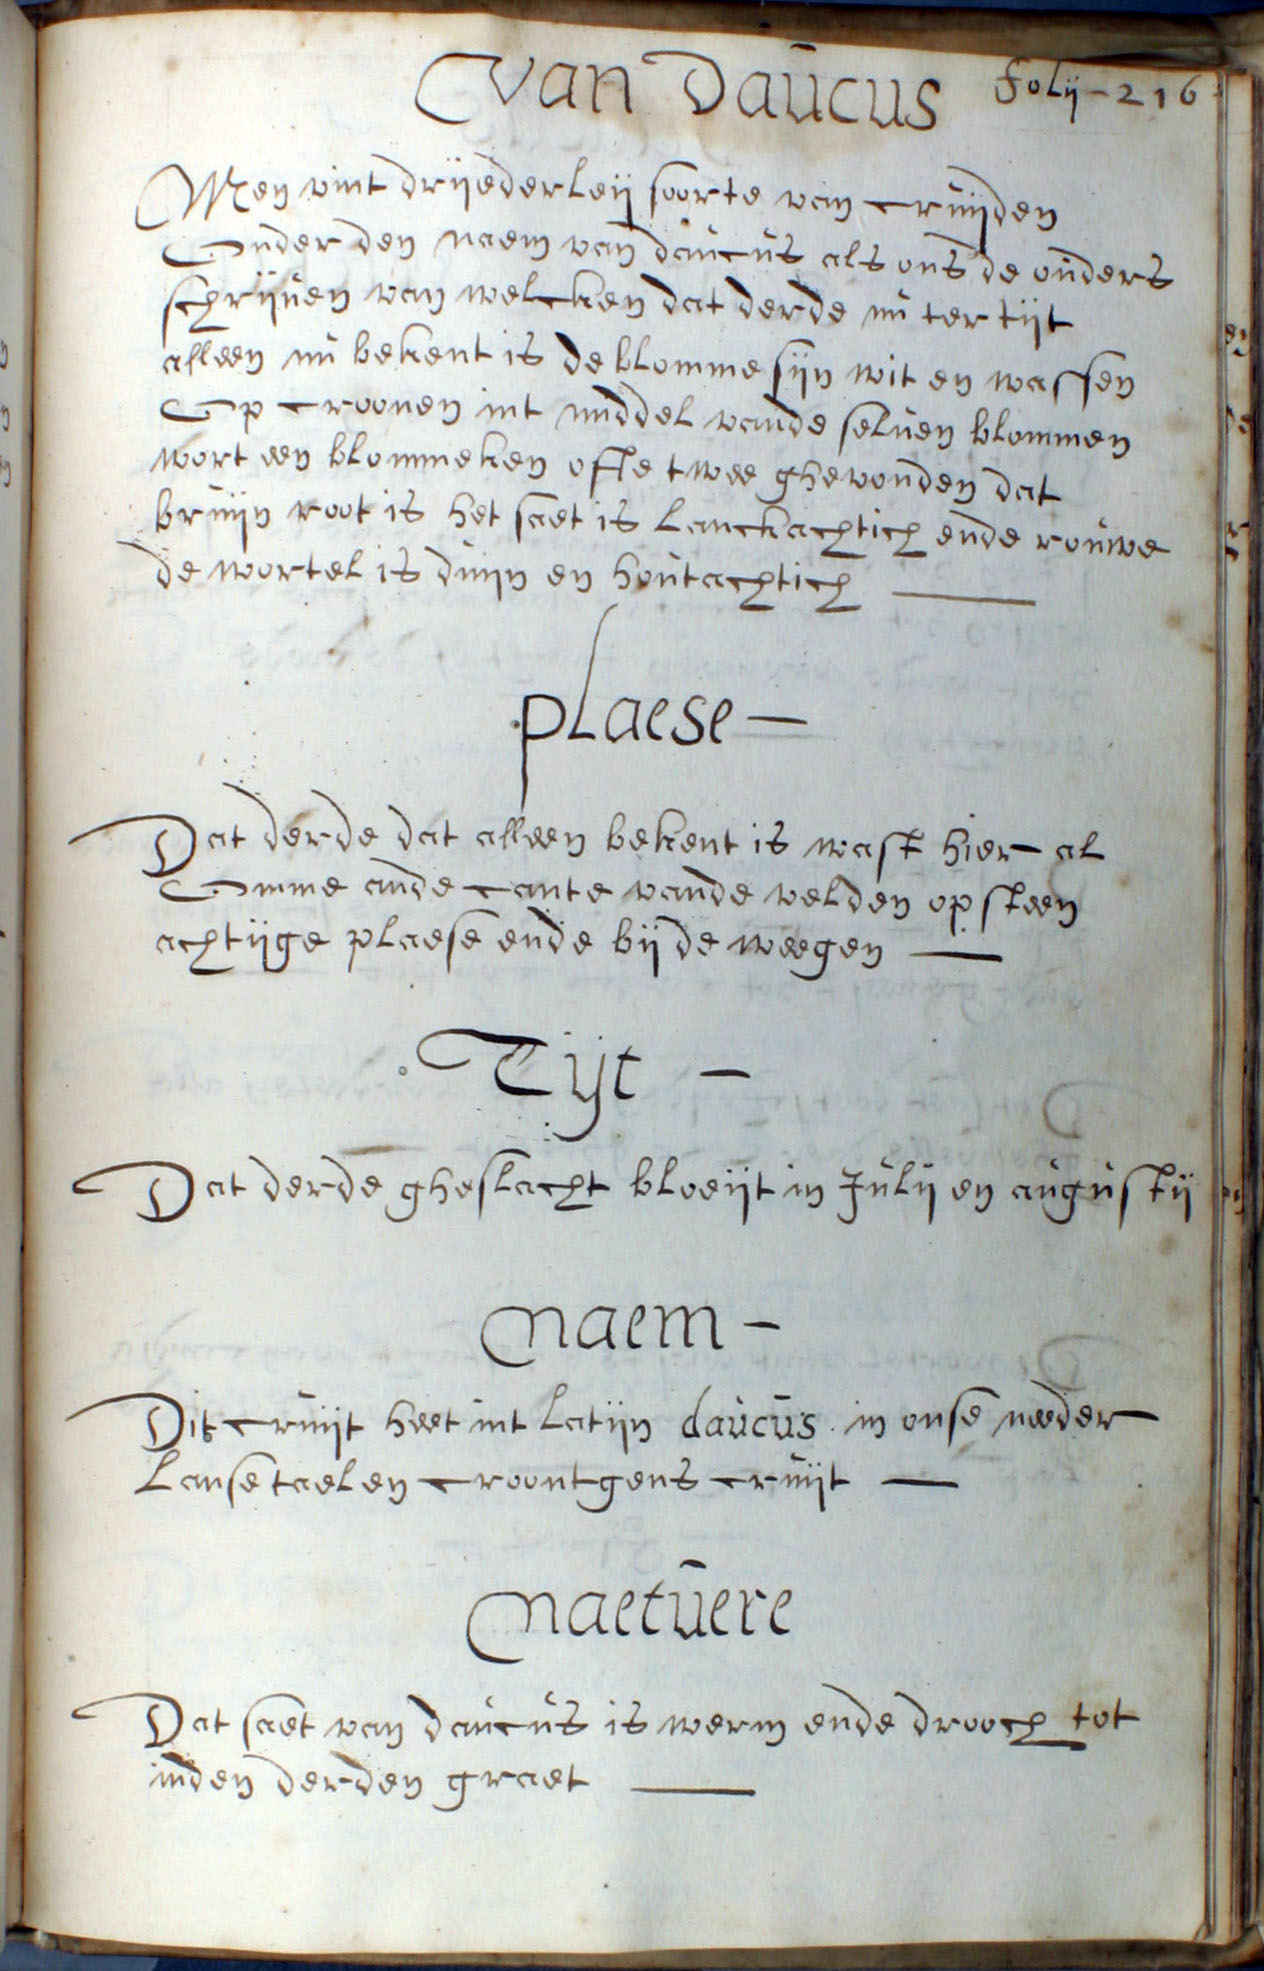 Van Daucus folij - 216
Men vint drijederleij soorte van cruijden
Onder den naem van daucus als ons de ouders
schrijuen van welcken dat derde nu ter tijt
alleen nu bekent is de blomme sijn wit en wassen
Op croonen int middel vande seluen blommen
wort een blommeken ofte twee ghevonden dat
bruijn root is het saet is lanckachtich ende rouwe
de wortel is duijn en houtachtich
plaese -
Dat derde dat alleen bekent is wast hier al
Omme ande cante vande velden op steen
achtijge plaese ende bij de weegen
Tijt -
Dat derde gheslacht bloeijt in Julij en augustij
naem -
Dit cruijt heet int latijn daucus in onse neder
lanse taelen croontgens cruijt
naetuere
Dat saet van daucus is werm ende drooch tot
inden derden graet